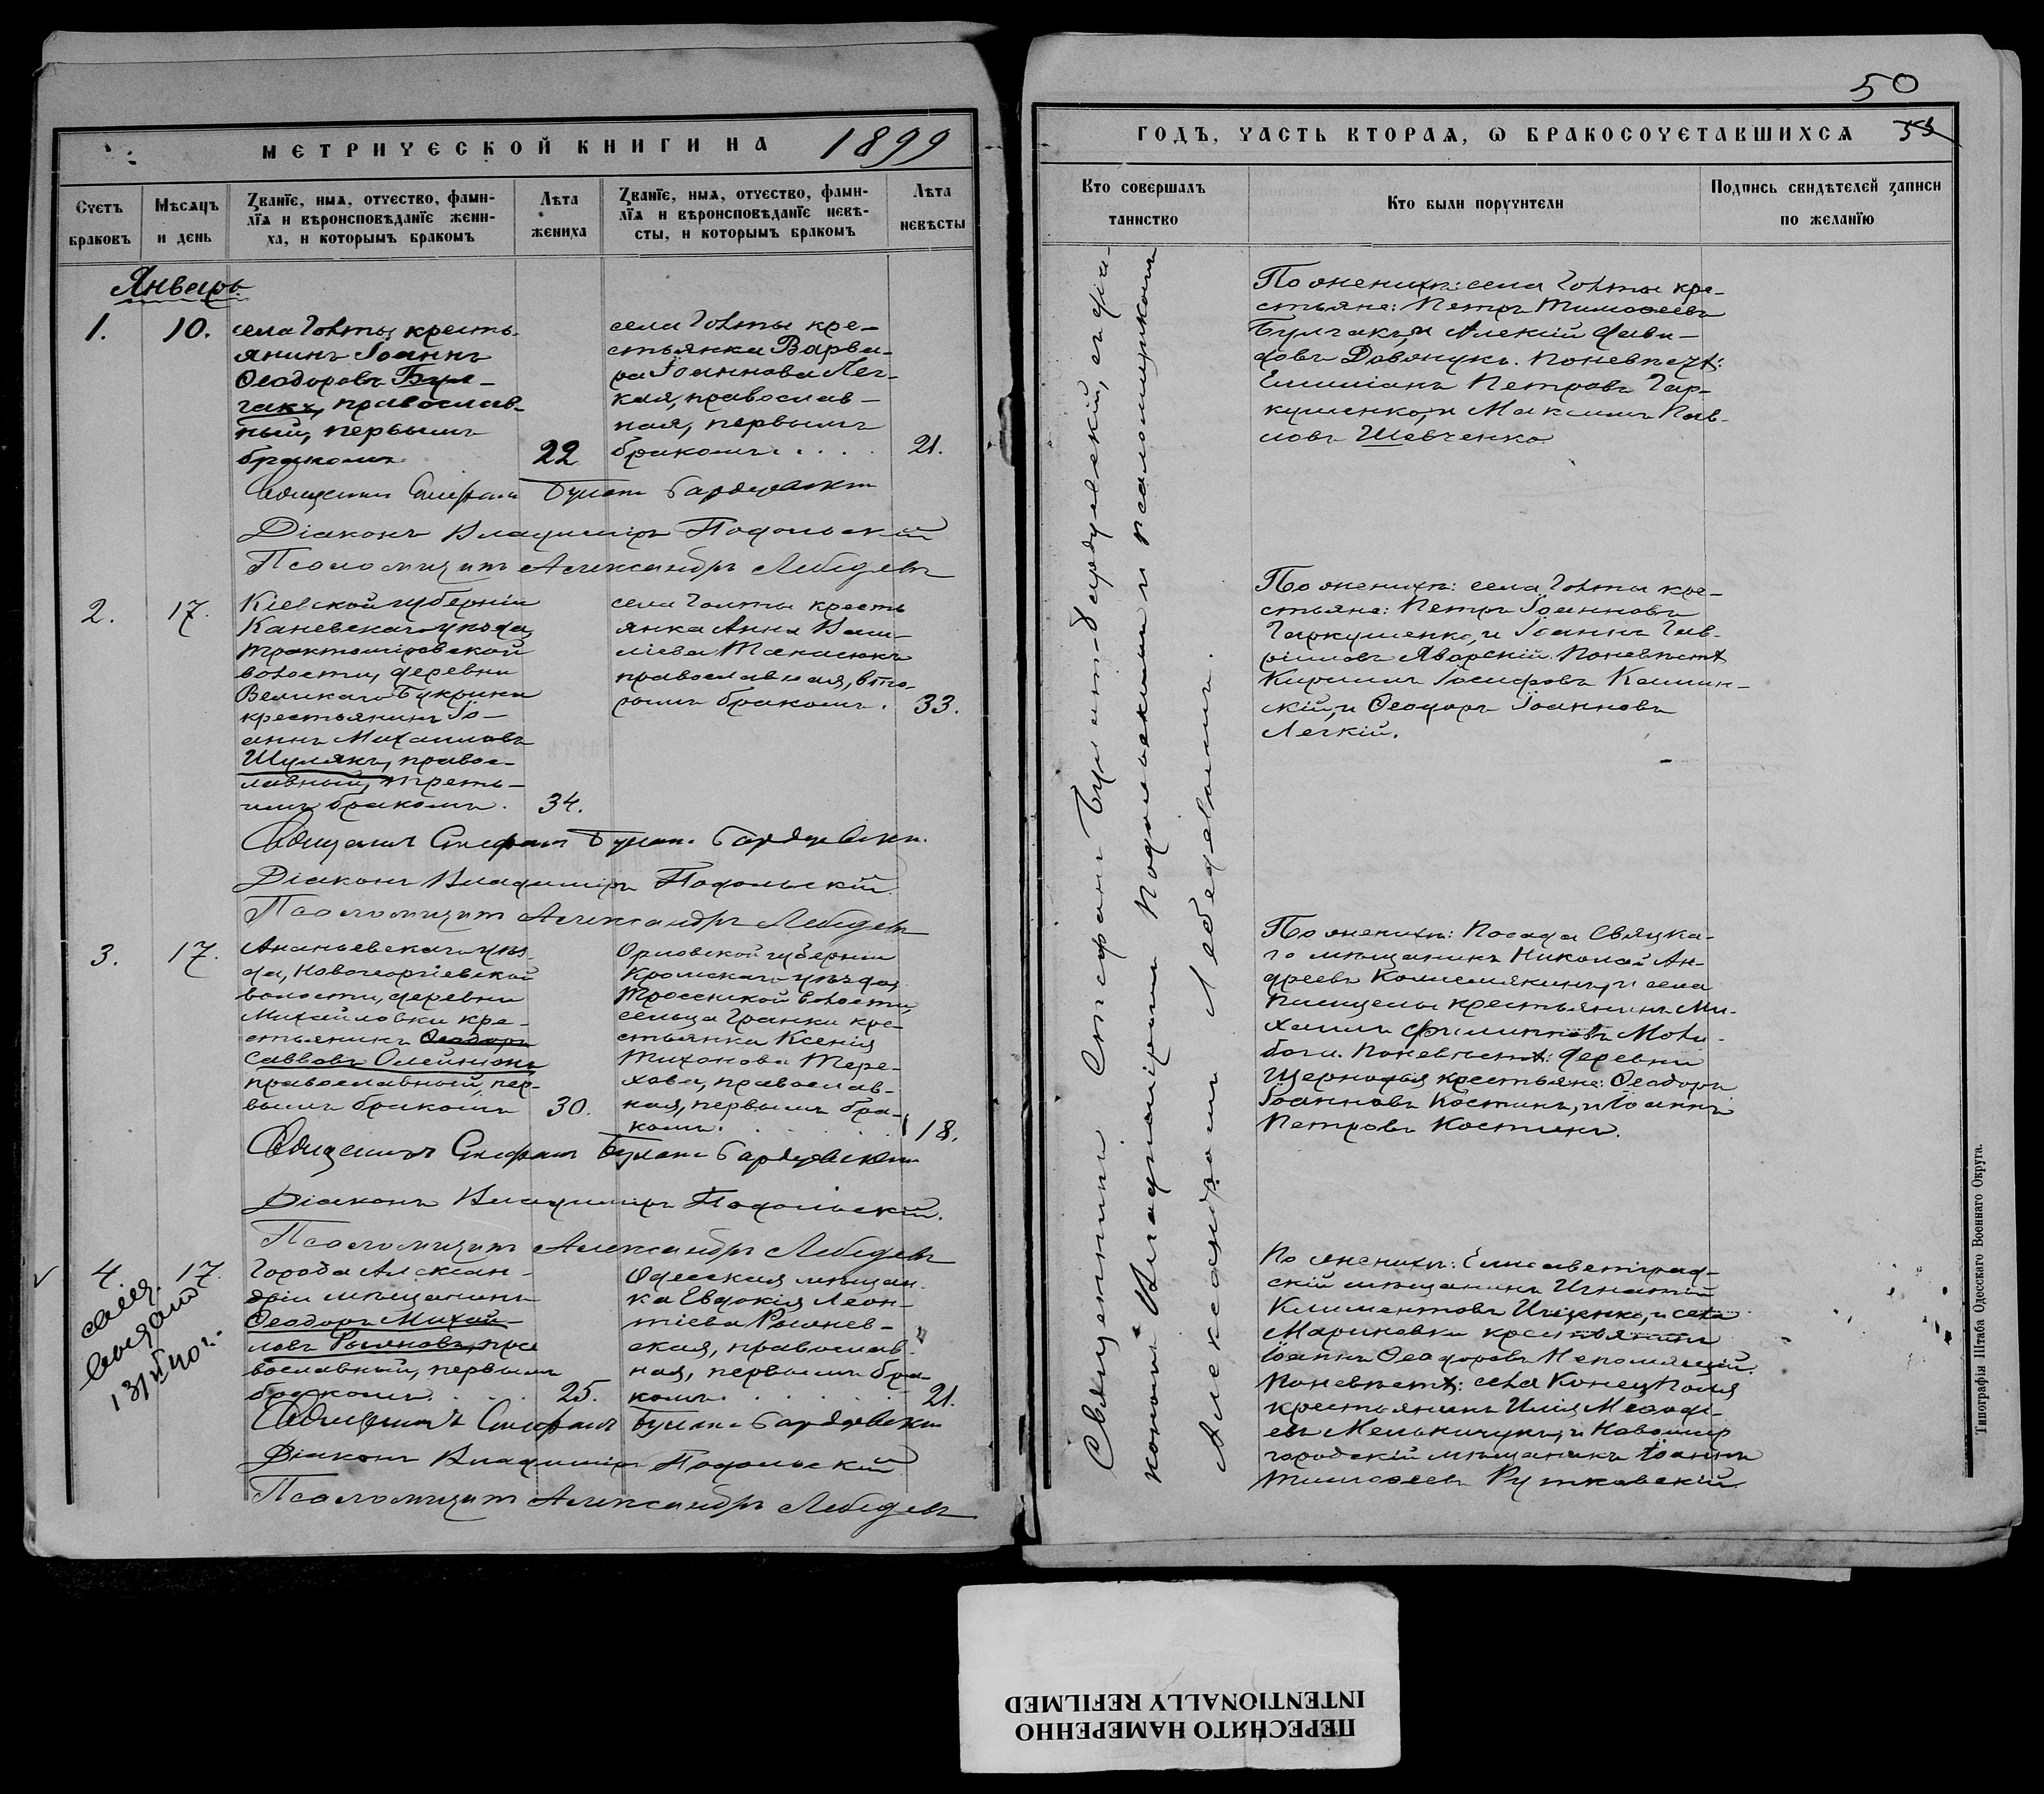 МЕТРИЧЕСКОЙ КНИГИ НА 1899
Счетъ браковъ
Мѣсяцъ и день
Званїе, имя, отчество, фами-
лїя и вѣроисповѣданїе жени-
ха, и которымъ бракомъ
Лѣта жениха
Званїе, имя, отчество, фами-
лїя и вѣроисповѣданїе невѣ-
сты, и которымъ бракомъ
Лѣта невѣсты
Январь
1.
10.
села Голты кресть-
янинъ Іоаннъ
Ѳеодоровъ Бул-
гакъ, православ-
ный, первымъ
бракомъ
22
села Голты кре-
стьянка Варва-
ра Іоаннова Лег-
кая, православ-
ная, первымъ
бракомъ. . . .
21.
Священникъ Стефанъ Булат-Бардзевский
Діаконъ Владиміръ Подольскій
Псаломщикъ Александръ Лебедевъ
2.
17.
Кіевской губерніи
Каневскаго уѣзда,
Трактоміровской
волости, деревни
Великаго Букрина
крестьянинъ Іо-
аннъ Михаиловъ
Шулякъ, правос-
лавный, треть-
имъ бракомъ.
34.
села Голты кресть
янка Анна Васи-
ліева Танасюкъ
православная, вто-
рымъ бракомъ.
33.
Священникъ Стефанъ Булат-Бардзевский.
Діаконъ Владиміръ Подольскій.
Псаломщикъ Александръ Лебедевъ
3.
17.
Ананьевскаго уѣз-
да, Новогеоргіевской
волости, деревни
Михайловки кре-
стьянинъ Ѳеодоръ
Саввовъ Олейникъ
православный, пер-
вымъ бракомъ
30.
Орловской губерніи
Кромскаго уѣзда,
Тросенской волости,
сельца Гранки кре-
стьянка Ксенія
Тихонова Тере-
хова, православ-
ная, первымъ бра-
комъ. . . .
18.
Священникъ Стефанъ Булат-Бардзевский
Діаконъ Владиміръ Подольскій.
Псаломщикъ Александръ Лебедевъ
4.
17.
выдано
13/II 40 г.
Города Алексан-
дріи мѣщанинъ
Ѳеодоръ Михай-
ловъ Романовъ, пра
вославный, первымъ
бракомъ. . . .
25.
Одесская мѣщан-
ка Евдокія Леон-
тіева
ская, православ-
ная, первымъ бра-
комъ. . . .
21.
Священникъ Стефанъ Булат-Бардзевский
Діаконъ Владиміръ Подольскій
Псаломщикъ Александръ Лебедевъ
50
ГОДЪ, ЧАСТЬ ВТОРАЯ, Ѡ БРАКОСОЧЕТАВШИХСЯ
53
Кто совершалъ таинство
Кто были поручители
Подпись свидѣтелей записи
по желанїю
Священникъ Стефанъ Булат-Бардзевскій, съ діа-
кономъ Владиміромъ Подольскимъ и псаломщикомъ
Александромъ Лебедевымъ.
По женихѣ: села Голты кре-
стьяне: Петръ Тимоѳеевъ
Булгакъ, и Алексій Дави-
довъ Довянукъ. По невѣстѣ:
Емиліанъ Петровъ Гар-
кушенко, и Максимъ Пав-
ловъ Шевченко.
По женихѣ: села Голты кре-
стьяне: Петръ Іоанновъ
Гаркушенко, и Іоаннъ Гав-
ріиловъ Яворскій. По невѣстѣ
Кириллъ Іосифовъ Камин-
скій, и Ѳеодоръ Іоанновъ
Легкій.
По женихѣ: Посада Свяцка-
го мѣщанинъ Николай Ан-
дреевъ Коммелякинъ, и села
крестьянинъ Ми-
хаилъ Филипповъ Моли-
бога. По невѣстѣ: деревни
крестьяне: Ѳеодоръ
Іоанновъ Костинъ, и Іоаннъ
Петровъ Костинъ.
По женихѣ: Елисаветград-
скій мѣщанинъ Игнатій
Климентовъ Ищенко, и села
Мариновки крестьянинъ
Іоаннъ Ѳеодоровъ Непомящій.
По невѣстѣ: села Конецполя
крестьянинъ Илія Меѳоді-
евъ Мельничукъ, и Новомир
городскій мѣщанинъ Іоаннъ
Тимоѳеевъ Рутковскій
Типографія Штаба Одесскаго Военнаго Округа.
ПЕРЕСНЯТО НАМЕРЕННО
INTENTIONALLY REFILMED